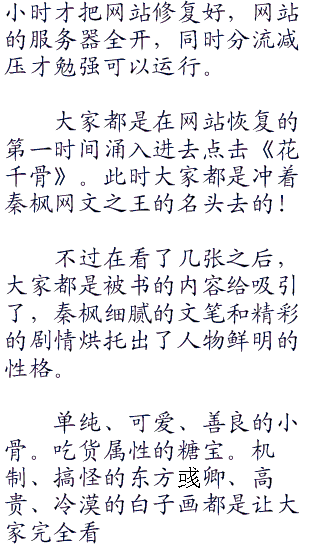 小时才把网站修复好，网站
的服务器全开，同时分流减
压才勉强可以运行。
大家都是在网站恢复的
第一时间涌入进去点击《花
千骨》。此时大家都是冲着
秦枫网文之王的名头去的！
不过在看了几张之后，
大家都是被书的内容给吸引
了，秦枫细腻的文笔和精彩
的剧情烘托出了人物鲜明的
性格。
单纯、可爱、善良的小
骨。吃货属性的糖宝。机
制、搞怪的东方彧卿、高
贵、冷漠的白子画都是让大
家完全看